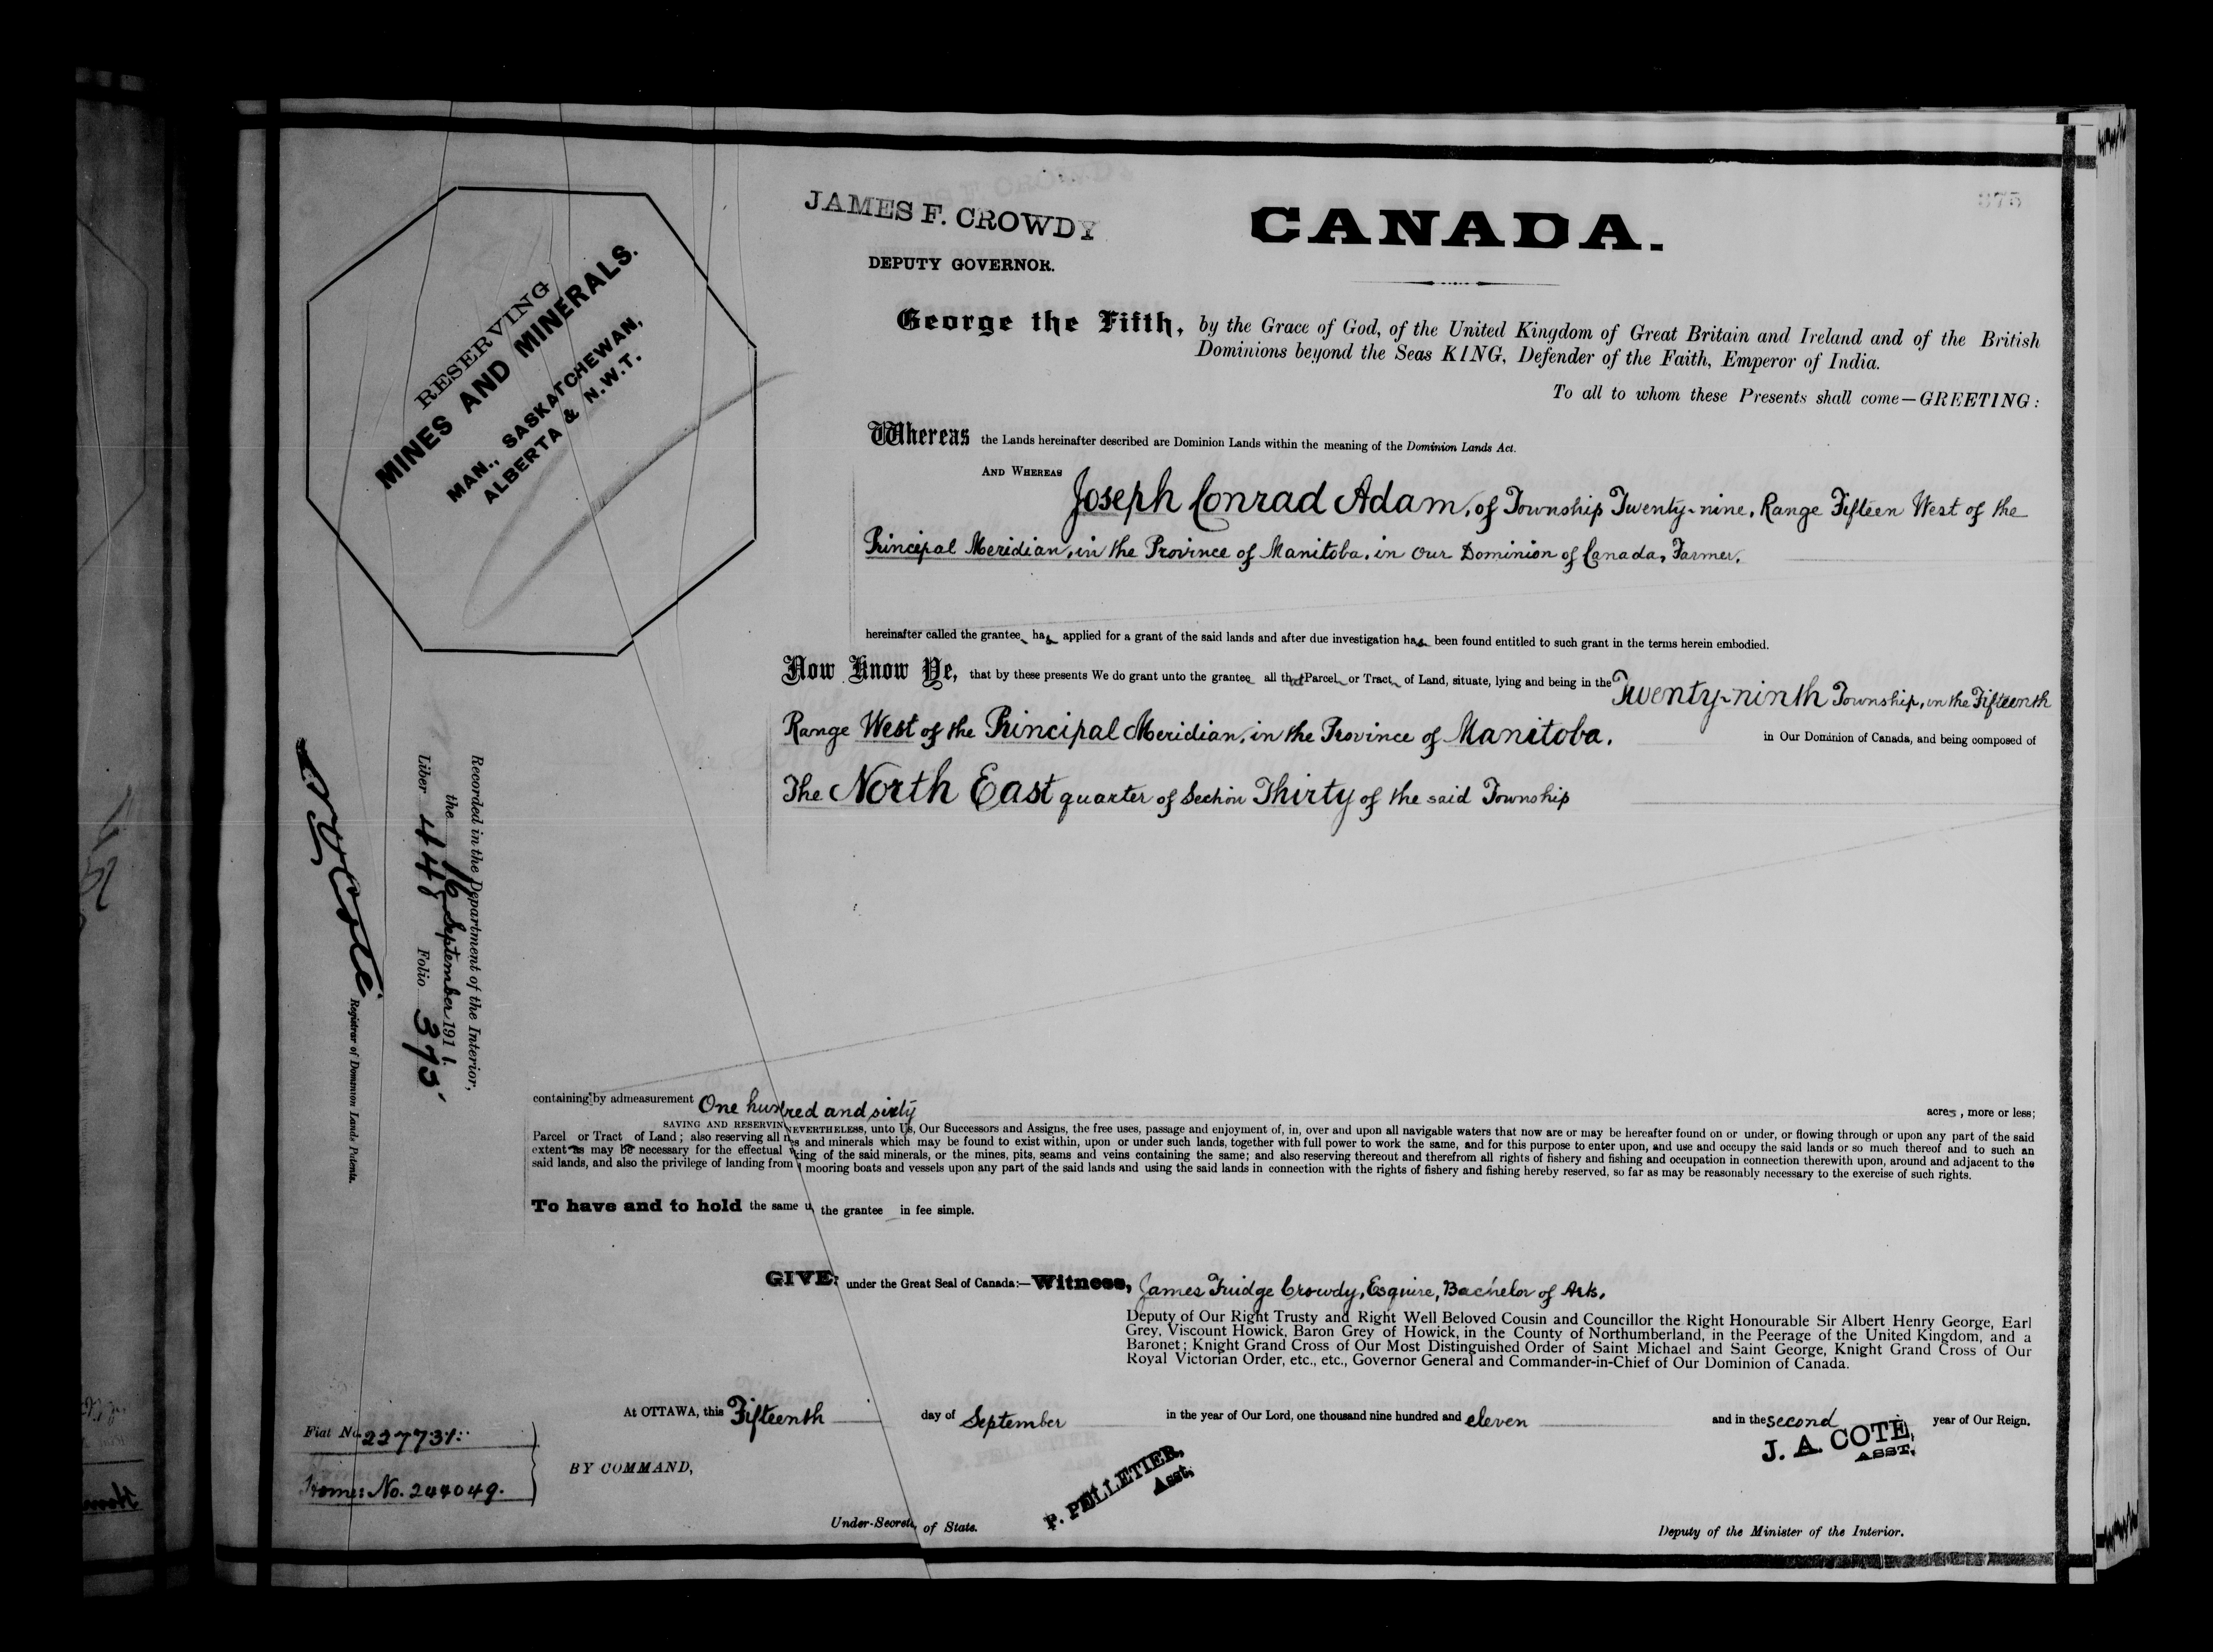 375
JAMES F. CROWDY
DEPUTY GOVERNOR.
CANADA.
RESERVING
MINES AND MINERALS.
MAN., SASKATCHEWAN,
ALBERTA & N.W.T.
George the Fifth, by the Grace of God, of the United Kingdom of Great Britain and Ireland and of the British
Dominions beyond the Seas KING, Defender of the Faith, Emperor of India.
To all to whom these Presents shall come—GREETING:
Whereas the Lands hereinafter described are Dominion Lands within the meaning of the Dominion Lands Act.
AND WHEREAS
Joseph Conrad Adam, of Township Twenty-nine, Range Fifteen West of the
Principal Meridian, in the Province of Manitoba, in Our Dominion of Canada, Farmer,
hereinafter called the grantee has applied for a grant of the said lands and after due investigation has been found entitled to such grant in the terms herein embodied.
Now Know Ye, that by these presents We do grant unto the grantee all that Parcel or Tract of Land, situate, lying and being in the Twenty-ninth Township, in the Fifteenth
Range West of the Principal Meridian, in the Province of Manitoba, in Our Dominion of Canada, and being composed of
The North East quarter of Section Thirty of the said Township
Recorded in the Department of the Interior,
the 16 September 1911.
Liber 448 Folio 375
Registrar of Dominion Lands Patents.
containing by admeasurement One hundred and sixty acres, more or less;
SAVING AND RESERVIN NEVERTHELESS, unto Us, Our Successors and Assigns, the free uses, passage and enjoyment of, in, over and upon all navigable waters that now are or may be hereafter found on or under, or flowing through or upon any part of the said
Parcel or Tract of Land; also reserving all es and minerals which may be found to exist within, upon or under such lands, together with full power to work the same, and for this purpose to enter upon, and use and occupy the said lands or so much thereof and to such an
extent as may be necessary for the effectual king of the said minerals, or the mines, pits, seams and veins containing the same; and also reserving thereout and therefrom all rights of fishery and fishing and occupation in connection therewith upon, around and adjacent to the
said lands, and also the privilege of landing from mooring boats and vessels upon any part of the said lands and using the said lands in connection with the rights of fishery and fishing hereby reserved, so far as may be reasonably necessary to the exercise of such rights.
To have and to hold the same u the grantee in fee simple.
GIVE: under the Great Seal of Canada:—Witness, James Fuidge Crowdy, Esquire, Bachelor of Arts,
Deputy of Our Right Trusty and Right Well Beloved Cousin and Councillor the Right Honourable Sir Albert Henry George, Earl
Grey, Viscount Howick, Baron Grey of Howick, in the County of Northumberland, in the Peerage of the United Kingdom, and a
Baronet; Knight Grand Cross of Our Most Distinguished Order of Saint Michael and Saint George, Knight Grand Cross of Our
Royal Victorian Order, etc., etc., Governor General and Commander-in-Chief of Our Dominion of Canada.
At OTTAWA, this Fifteenth day of September in the year of Our Lord, one thousand nine hundred and eleven and in the second year of Our Reign.
Fiat No. 227731
Home: No. 244049.
BY COMMAND,
P. PELLETIER,
Asst.
J. A. COTE,
ASST.
Under-Secret of State.
Deputy of the Minister of the Interior.